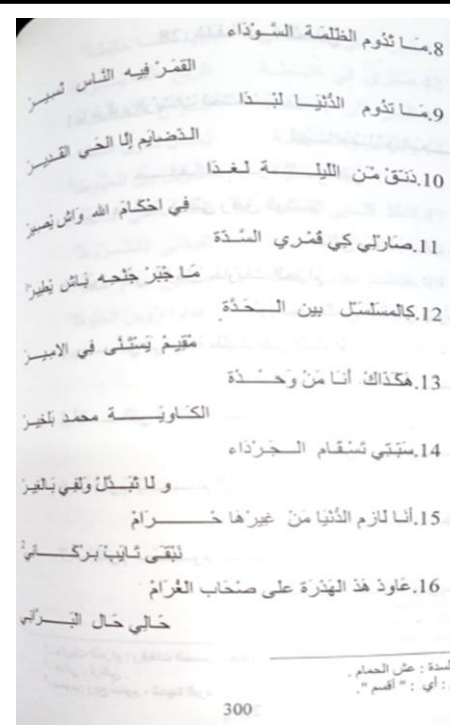 8.مَــا تْدُوم الظّلْمَة السَّـوْدَاء
القمَرْ فِيه النَّاس تْسِيــرْ
9.مَــا تدُوم الدُّنْيَا لَبْــدَا
الـدّضايَم إلَّا الحَي القديـرْ
10.نَتَقْ مْن اللّيلــــة لـغـدَا
فِي احْكَـامْ الله وَاش يْصِيرْ
11.صَارلِي كِي قُمْري السَّدّة
مَـا جْبَرْ جَنْحـه بَـاش يْطِيرْ¹
12.كِالمسَلسَل بين الــحَدّة
مْقِيـمْ يَسْتَنَّى فِي الامِيــرْ
13.هَكْذَاكْ أنـا مَنْ وَحـــدَة
الكَـاويَـــــة محمد بَلخيـرْ
14.سَبّتِي تَسْقـام الــجَرْدَاء
و لا تْبَــدّلْ وَلْفِي بَالغيرْ
15.أنـا لازم الدُّنْيَا مَنْ غيرْهَا حْــــرَامْ
نَبْقَى تَـايَبْ بَـرْكَــانِي²
16.عَاودْ هَذ الهَدْرَة على صْحَاب الغْرَامْ
حَـالِي حَال البَــرَّانِي
السدة : عش الحمام .
: أي : " أقسم ".
300